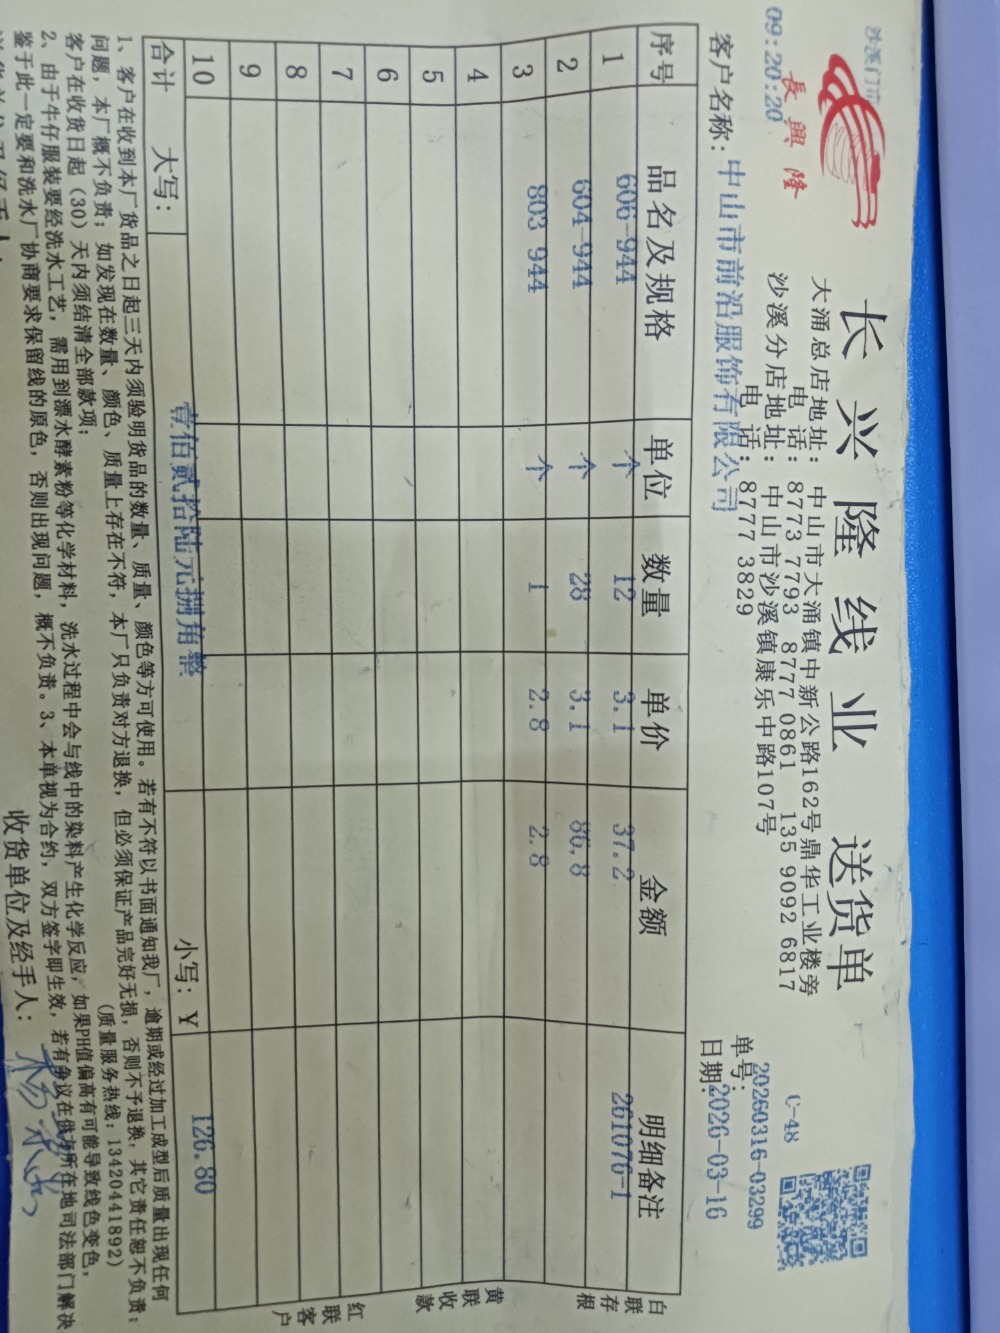 沙溪门市
09:20:20
長興隆
长兴隆线业 送货单
大涌总店地址：中山市大涌镇中新公路162号鼎华工业楼旁
电话：8773 7793 8777 0861 135 9092 6817
沙溪分店地址：中山市沙溪镇康乐中路107号
电话：8777 3829
C-48
单号：20260316-03299
客户名称：中山市前沿服饰有限公司
日期：2026-03-16
序号 品名及规格 单位 数量 单价 金额 明细备注
1 606-944 个 12 3.1 37.2 261076-1
2 604-944 个 28 3.1 86.8
3 803 944 个 1 2.8 2.8
4
5
6
7
8
9
10
合计 大写： 壹佰贰拾陆元捌角整 小写：￥ 126.80
白联存根
黄联收款
红联客户
1、客户在收到本厂货品之日起三天内须验明货品的数量、质量、颜色等方可使用。若有不符以书面通知我厂，逾期或经过加工成型后质量出现任何
问题，本厂概不负责；如发现在数量、颜色、质量上存在不符，本厂只负责对方退换，但必须保证产品完好无损，否则不予退换，其它责任恕不负责；
客户在收货日起（30）天内须结清全部款项； （质量服务热线：13420441892）
2、由于牛仔服装要经洗水工艺，需用到漂水酵素粉等化学材料，洗水过程中会与线中的染料产生化学反应，如果PH值偏高有可能导致线色变色，
鉴于此一定要和洗水厂协商要求保留线的原色，否则出现问题，概不负责。3、本单视为合约，双方签字即生效，若有争议在供方所在地司法部门解决
收货单位及经手人：